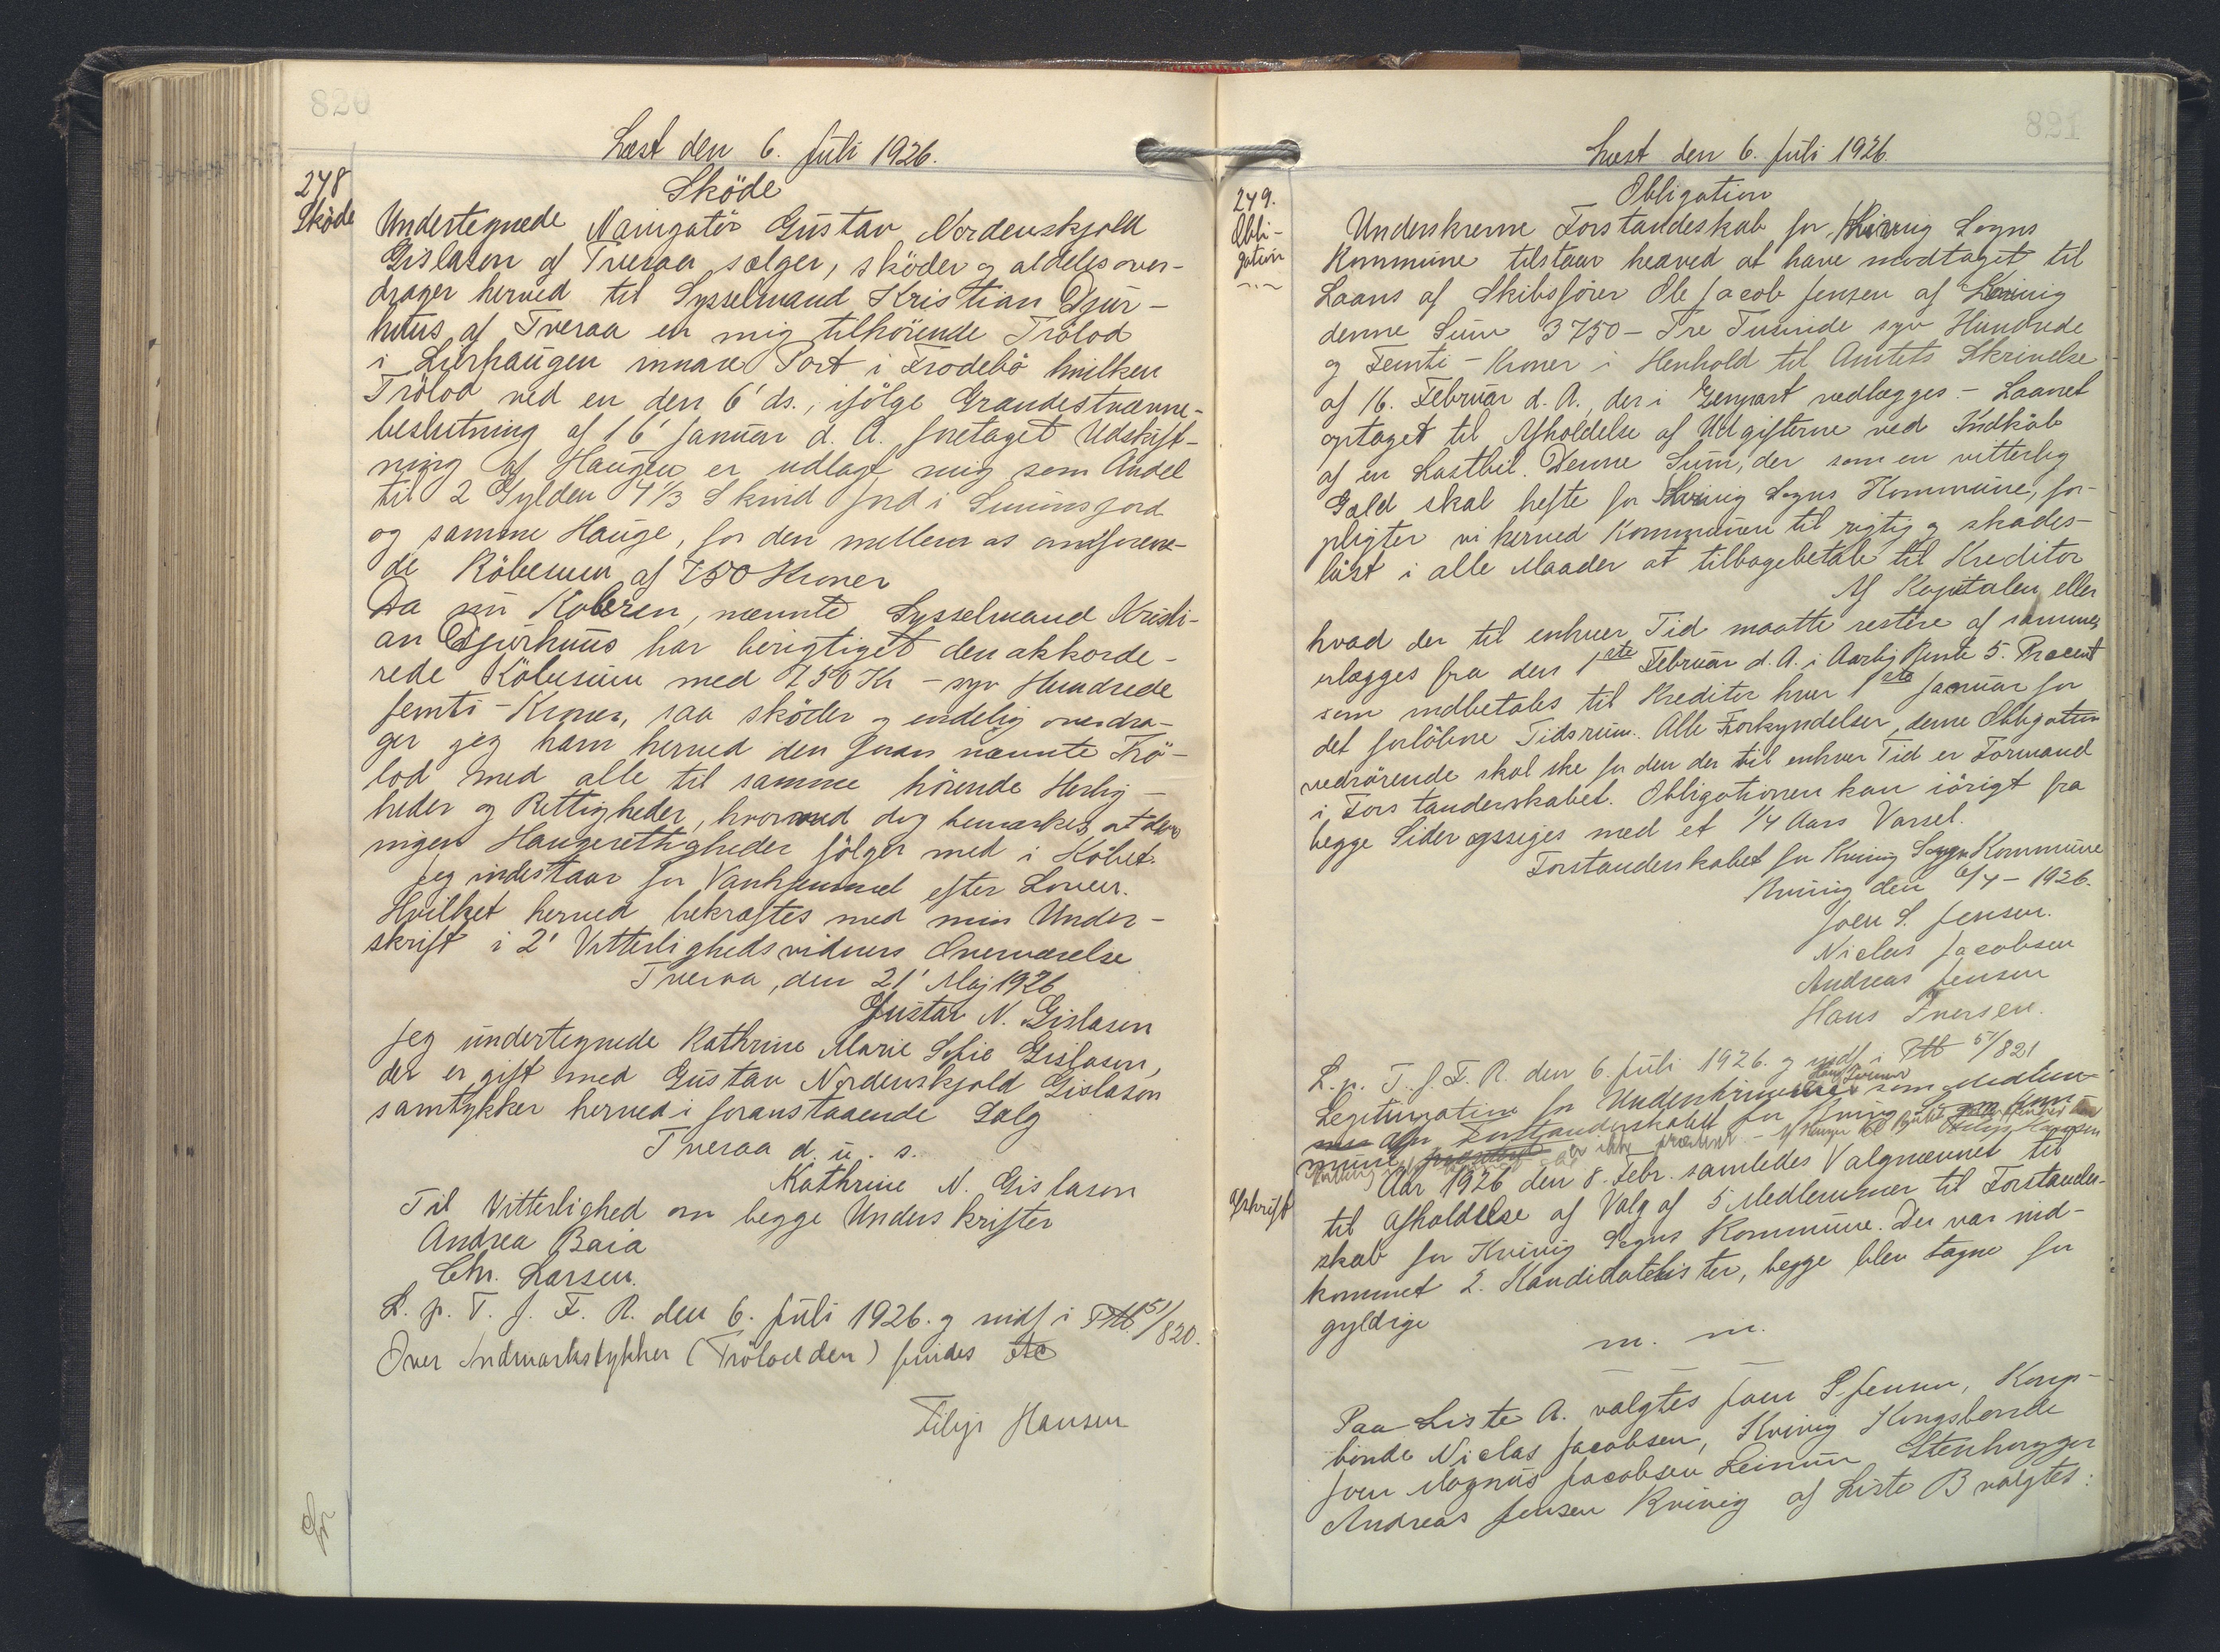 820
Læst den 6. Juli 1926.
248
Sköde
Sköde
Undertegnede Navigatör Gustav Nordenskjold
Gislason af Tveraa sælger, sköder og aldeles over-
drager herved til Sysselmand Kristian Djur-
huus af Tveraa en mig tilhörende Trölod
i Lirhaugen innan Port i Frodebö hvilken
Trölod ved en den 6' ds., ifölge Grandestævne-
beslutning af 16' Januar d. A. foretaget Udskift-
ning af Haugen er udlagt mig som Andel
til 2 Gylden 4 1/3 Skind Jord i Sununsjord
og samme Hauge, for den mellem os omforene-
de Köbesum af 750 Kroner
Da nu Köberen, nævnte Sysselmand Kristi-
an Djurhuus har berigtiget den akkorde-
rede Köbesum med 750 Kr - syv Hundrede
femti - Kroner, saa sköder og endelig overdra-
ger jeg ham herved den foran nævnte Trö-
lod med alle til samme hörende Herlig-
heder og Rettigheder, hvorved dog bemærkes, at der
ingen Haugerettigheder fölger med i Köbet.
Jeg indestaar for Vanhjemmel efter Loven.
Hvilket herved bekræftes med min Under-
skrift i 2' Vitterlighedsvidners Overværelse
Tveraa, den 21' Maj 1926
Gustav N. Gislason
Jeg undertegnede Kathrine Marie Sofie Gislason,
der er gift med Gustav Nordenskjold Gislason
samtykker herved i foranstaaende Salg
Tveraa d. u. s.
Kathrine N. Gislason
Til Vitterlighed om begge Underskrifter
Andrea Baia
Chr. Larsen.
L. p. T. f. F. R. den 6. Juli 1926. og indf i Ptb 51/820.
Over Indmarkstykker (Trölodden) findes
Filip Hansen
821
Læst den 6. Juli 1926.
249.
Obli-
gation
Obligation
Underskrevne Forstandeskab for Kvivig Sogns
Kommune tilstaar herved at have modtaget til
Laans af Skibsförer Ole Jacob Jensen af Kvivig
denne Sum 3750 - Tre Tusinde syv Hundrede
og Femti - Kroner i Henhold til Amtets Skrivelse
af 16. Februar d. A. der i Genpart vedlægges - Laanet
optaget til Afholdelse af Udgifterne ved Indköb
af en Lastbil. Denne Sum, der som en vitterlig
Gæld skal hefte for Kvivig Sogns Kommune, for-
pligter vi herved Kommunen til rigtig og skades-
löst i alle Maader at tilbagebetale til Kreditor
Af Kapitalen eller
hvad der til enhver Tid maatte restere af samme
erlægges fra den 1ste Februar d. A. i Aarlig Rente 5. Procent
som indbetales til Kreditor hver 1ste Januar for
det forlöbne Tidsrum. Alle Forkyndelser, denne Obligation
vedrörende skal ske for den der til enhver Tid er Formand
i Forstanderskabet. Obligationen kan iörigt fra
begge Sider opsiges med et 1/4 Aars Varsel.
Forstanderskabet for Kvivig Sogns Kommune
Kvivig den 6/4 - 1926.
Joen S. Jensen.
Niclas Jacobsen
Andreas Jensen
Hans Iversen.
L. p. T. f. F. R. den 6. Juli 1926. og indf i Ptb 51/821
Legitimation for som Medlem
af Forstanderskabet for Kvivig Sogns Kom-
mune er ikke
Afskrift
Aar 1926 den 8. Febr. samledes Valgnævnet til
til Afholdelse af Valg af 5 Medlemmer til Forstander-
skab for Kvivig Sogns Kommune. Der var ind-
kommet 2. Kandidatlister, begge blev tagne for
gyldige
m. m.
Paa Liste A. valgtes Joen S. Jensen, Kongs-
bonde Niclas Jacobsen, Kvivig Kongsbonde
Joen Magnus Jacobsen Leinum Stenhugger
Andreas Jensen Kvivig af Liste B valgtes: